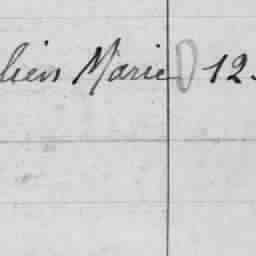 lien Marie 12.